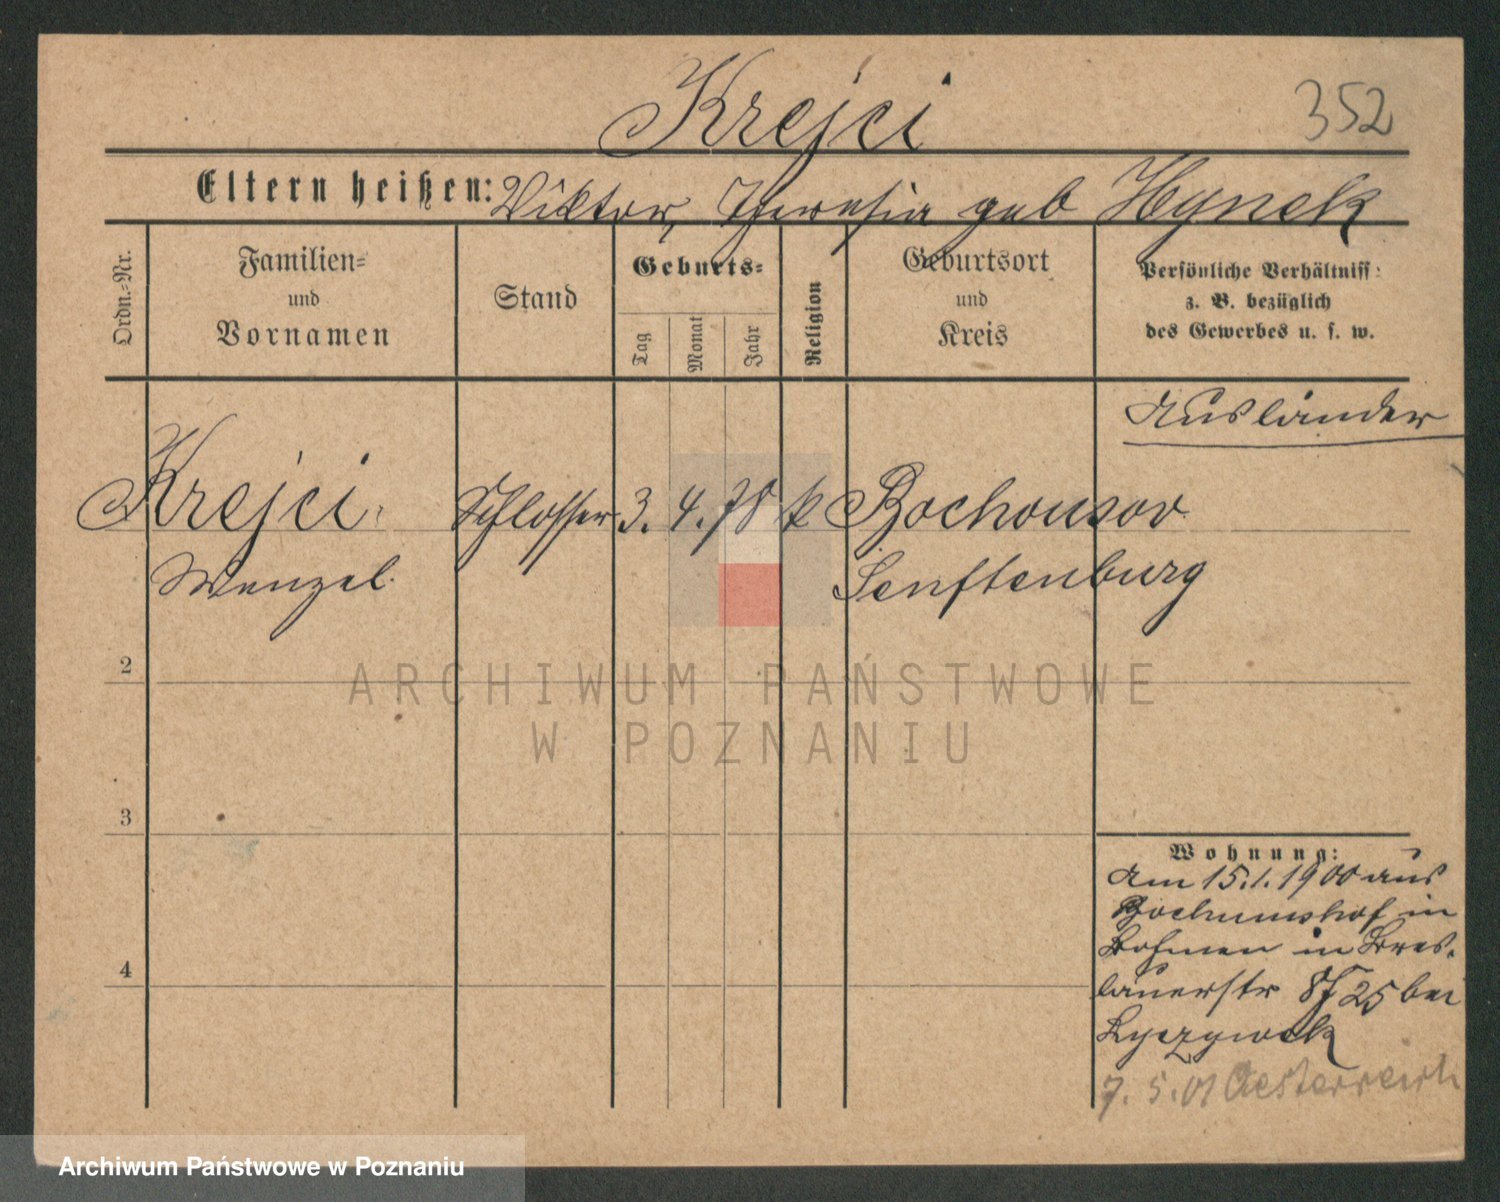 Krejci
352
Eltern heißen: Viktor, Theresia geb Hynek
Ordn.-Nr.
Familien=
und
Vornamen
Stand
Geburts=
Tag
Monat
Jahr
Religion
Geburtsort
und
Kreis
Persönliche Verhältniss:
z. B. bezüglich
des Gewerbes u. s. w.
Ausländer
Krejci Schlosser 3. 4. 78 k Bochousov
Wenzel. Senftenburg
2
ARCHIWUM PAŃSTWOWE
W POZNANIU
3
Wohnung:
Am 15.1.1900 aus
in
Bohmen in Bres-
lauerstr 25 bei
4
7. 5. 01 Oesterreich
Archiwum Państwowe w Poznaniu